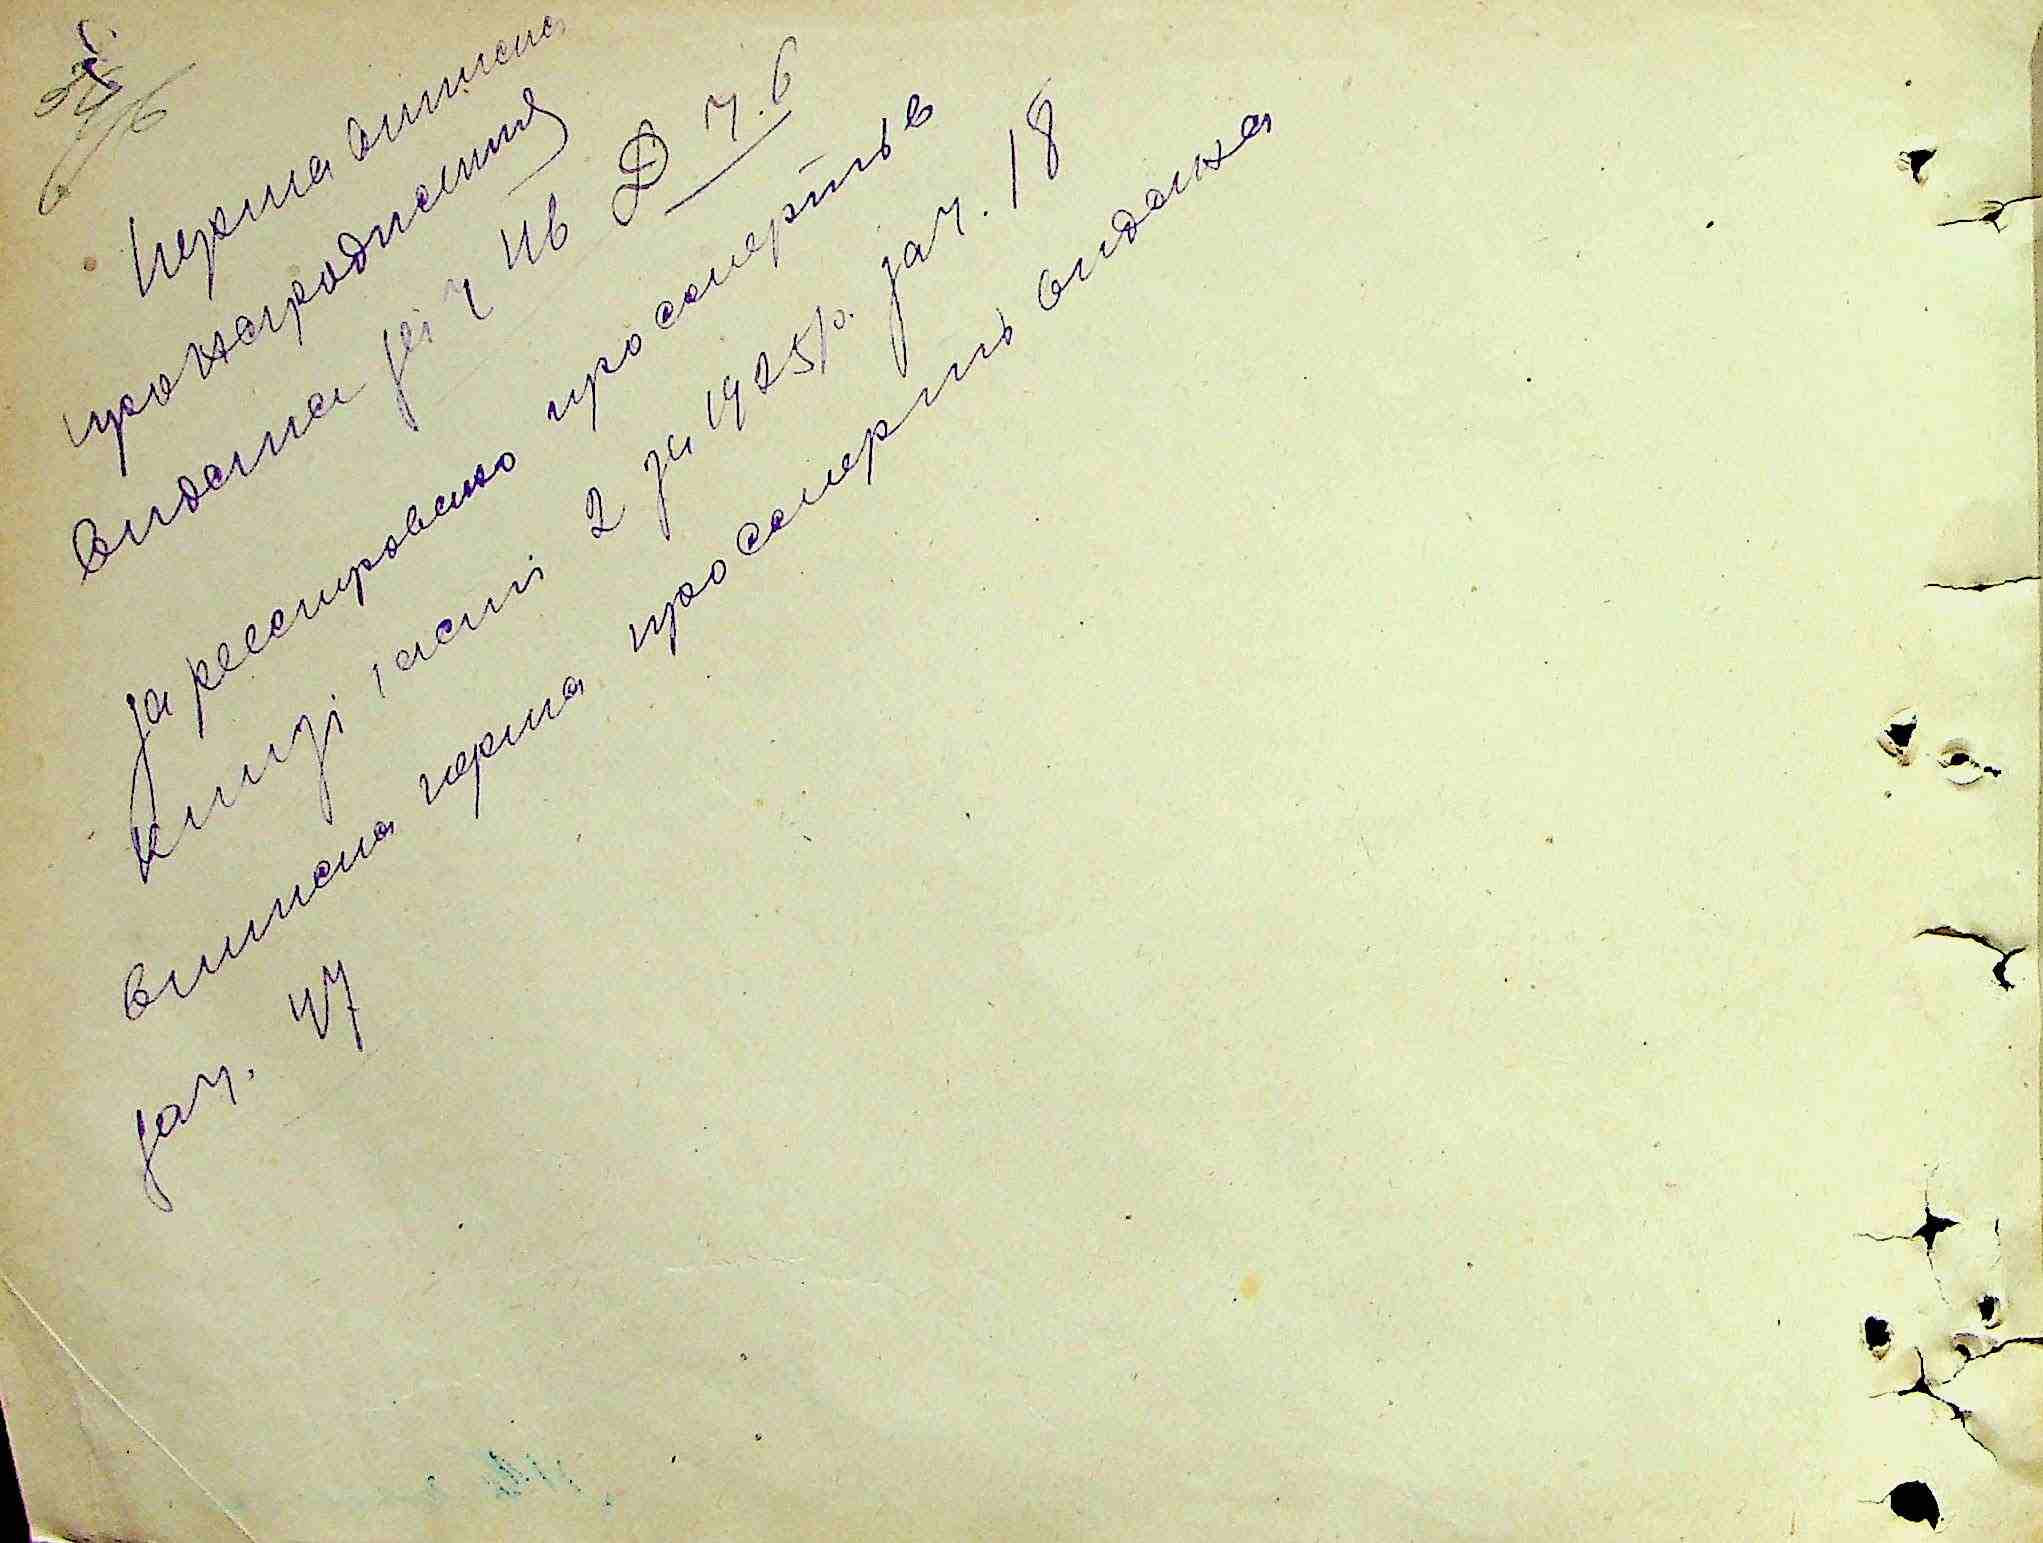 Перша виписка
про народження
видана за ч 46 Д ч. 6
Зареєстровано про смерть в
книзі части 2 за 1925 р. за ч. 18
виписка перша про смерть видана
за ч. 47